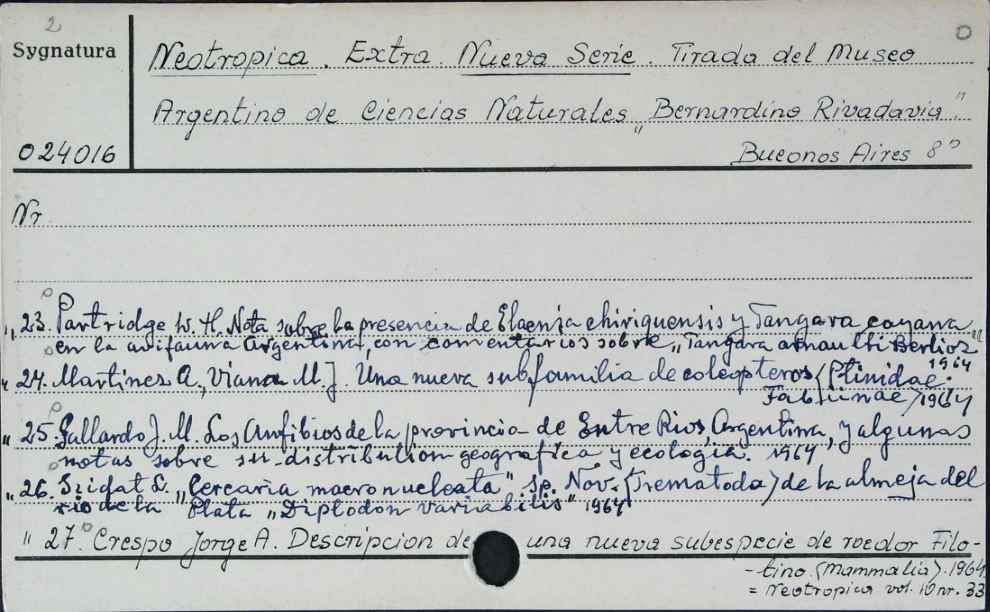 2
Sygnatura
024016
O
Neotropica. Extra. Nueva Serie. Tirada del Museo
Argentino de Ciencias Naturales „Bernardino Rivadavia"
Bueonos Aires 8º
Nr
„ 23. Partridge W. H. Nota sobre la presencia de Elaenia chiriquensis y Tangara cayana
en la avifauna Argentina, con comentarios sobre „Tangara arnaulti Berlioz" 1964
„ 24. Martinez A., Viana M. J. Una nueva subfamilia de coleopteros (Ptinidae-
Fabiinae) 1964
„ 25. Gallardo J. M. Los Anfibios de la provincia de Entre Rios, Argentina, y algunas
notas sobre su distribution geografica y ecologia. 1964
„ 26. Szidat L. „Cercaria macronucleata" sp. Nov. (Trematoda) de la almeja del
rio de la Plata „Diplodon variabilis" 1964
" 27. Crespo Jorge A. Descripcion de una nueva subespecie de roedor Filo-
-tino. (Mammalia). 1964
= Neotropica vol. 10 nr. 33